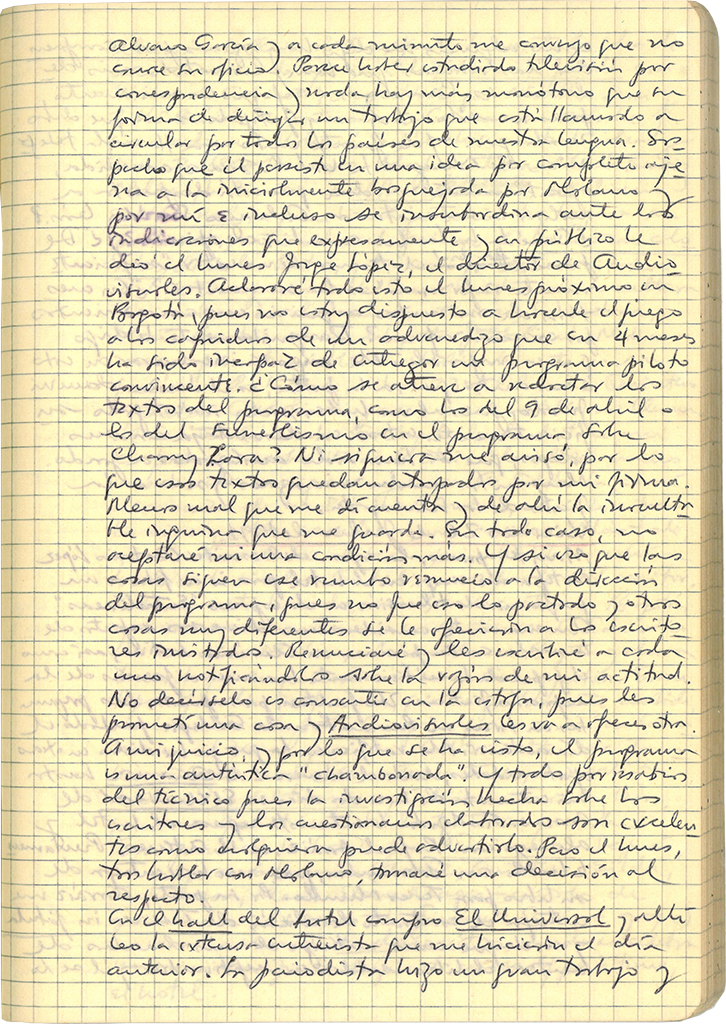 Alvaro García y a cada minuto me convenzo que no
conoce su oficio. Parece haber estudiado televisión por
correspondencia y nada hay más monótono que su
forma de dirigir un trabajo que está llamado a
circular por todos los países de nuestra lengua. Sos-
pecho que él persiste en una idea por completo aje-
na a la inicialmente bosquejada por Molano y
por mí e incluso se insubordina ante las
indicaciones que expresamente y en público le
dio el lunes Jorge López, el director de Audio-
visuales. Aclararé todo esto el lunes próximo en
Bogotá, pues no estoy dispuesto a hacerle el juego
a los caprichos de un advenedizo que en 4 meses
ha sido incapaz de entregar un programa piloto
convincente. ¿Cómo se atreve a redactar los
textos del programa, como los del 9 de abril o
los del surrealismo en el programa sobre
Charry Lara? Ni siquiera me avisó, por lo
que esos textos quedan atrapados por mi firma.
Menos mal que me di cuenta y de ahí la inoculta-
ble inquina que me guarda. En todo caso, no
aceptaré ni una condición más. Y si veo que las
cosas siguen ese rumbo renuncio a la dirección
del programa, pues no fue eso lo pactado y otras
cosas muy diferentes se le ofrecieron a los escrito-
res invitados. Renunciaré y les escribiré a cada
uno notificándolos sobre la razón de mi actitud.
No decírselo es consentir en la estafa, pues les
prometí una cosa y Audiovisuales les va a ofrecer otra.
A mi juicio, y por lo que se ha visto, el programa
es una auténtica "chambonada". Y todo por resabios
del técnico pues la investigación hecha sobre los
escritores y los cuestionarios elaborados son excelen-
tes como cualquiera puede advertirlo. Pero el lunes,
tras hablar con Molano, tomaré una decisión al
respecto.
En el hall del hotel compro El Universal y allí
leo la extensa entrevista que me hicieron el día
anterior. La periodista hizo un gran trabajo y